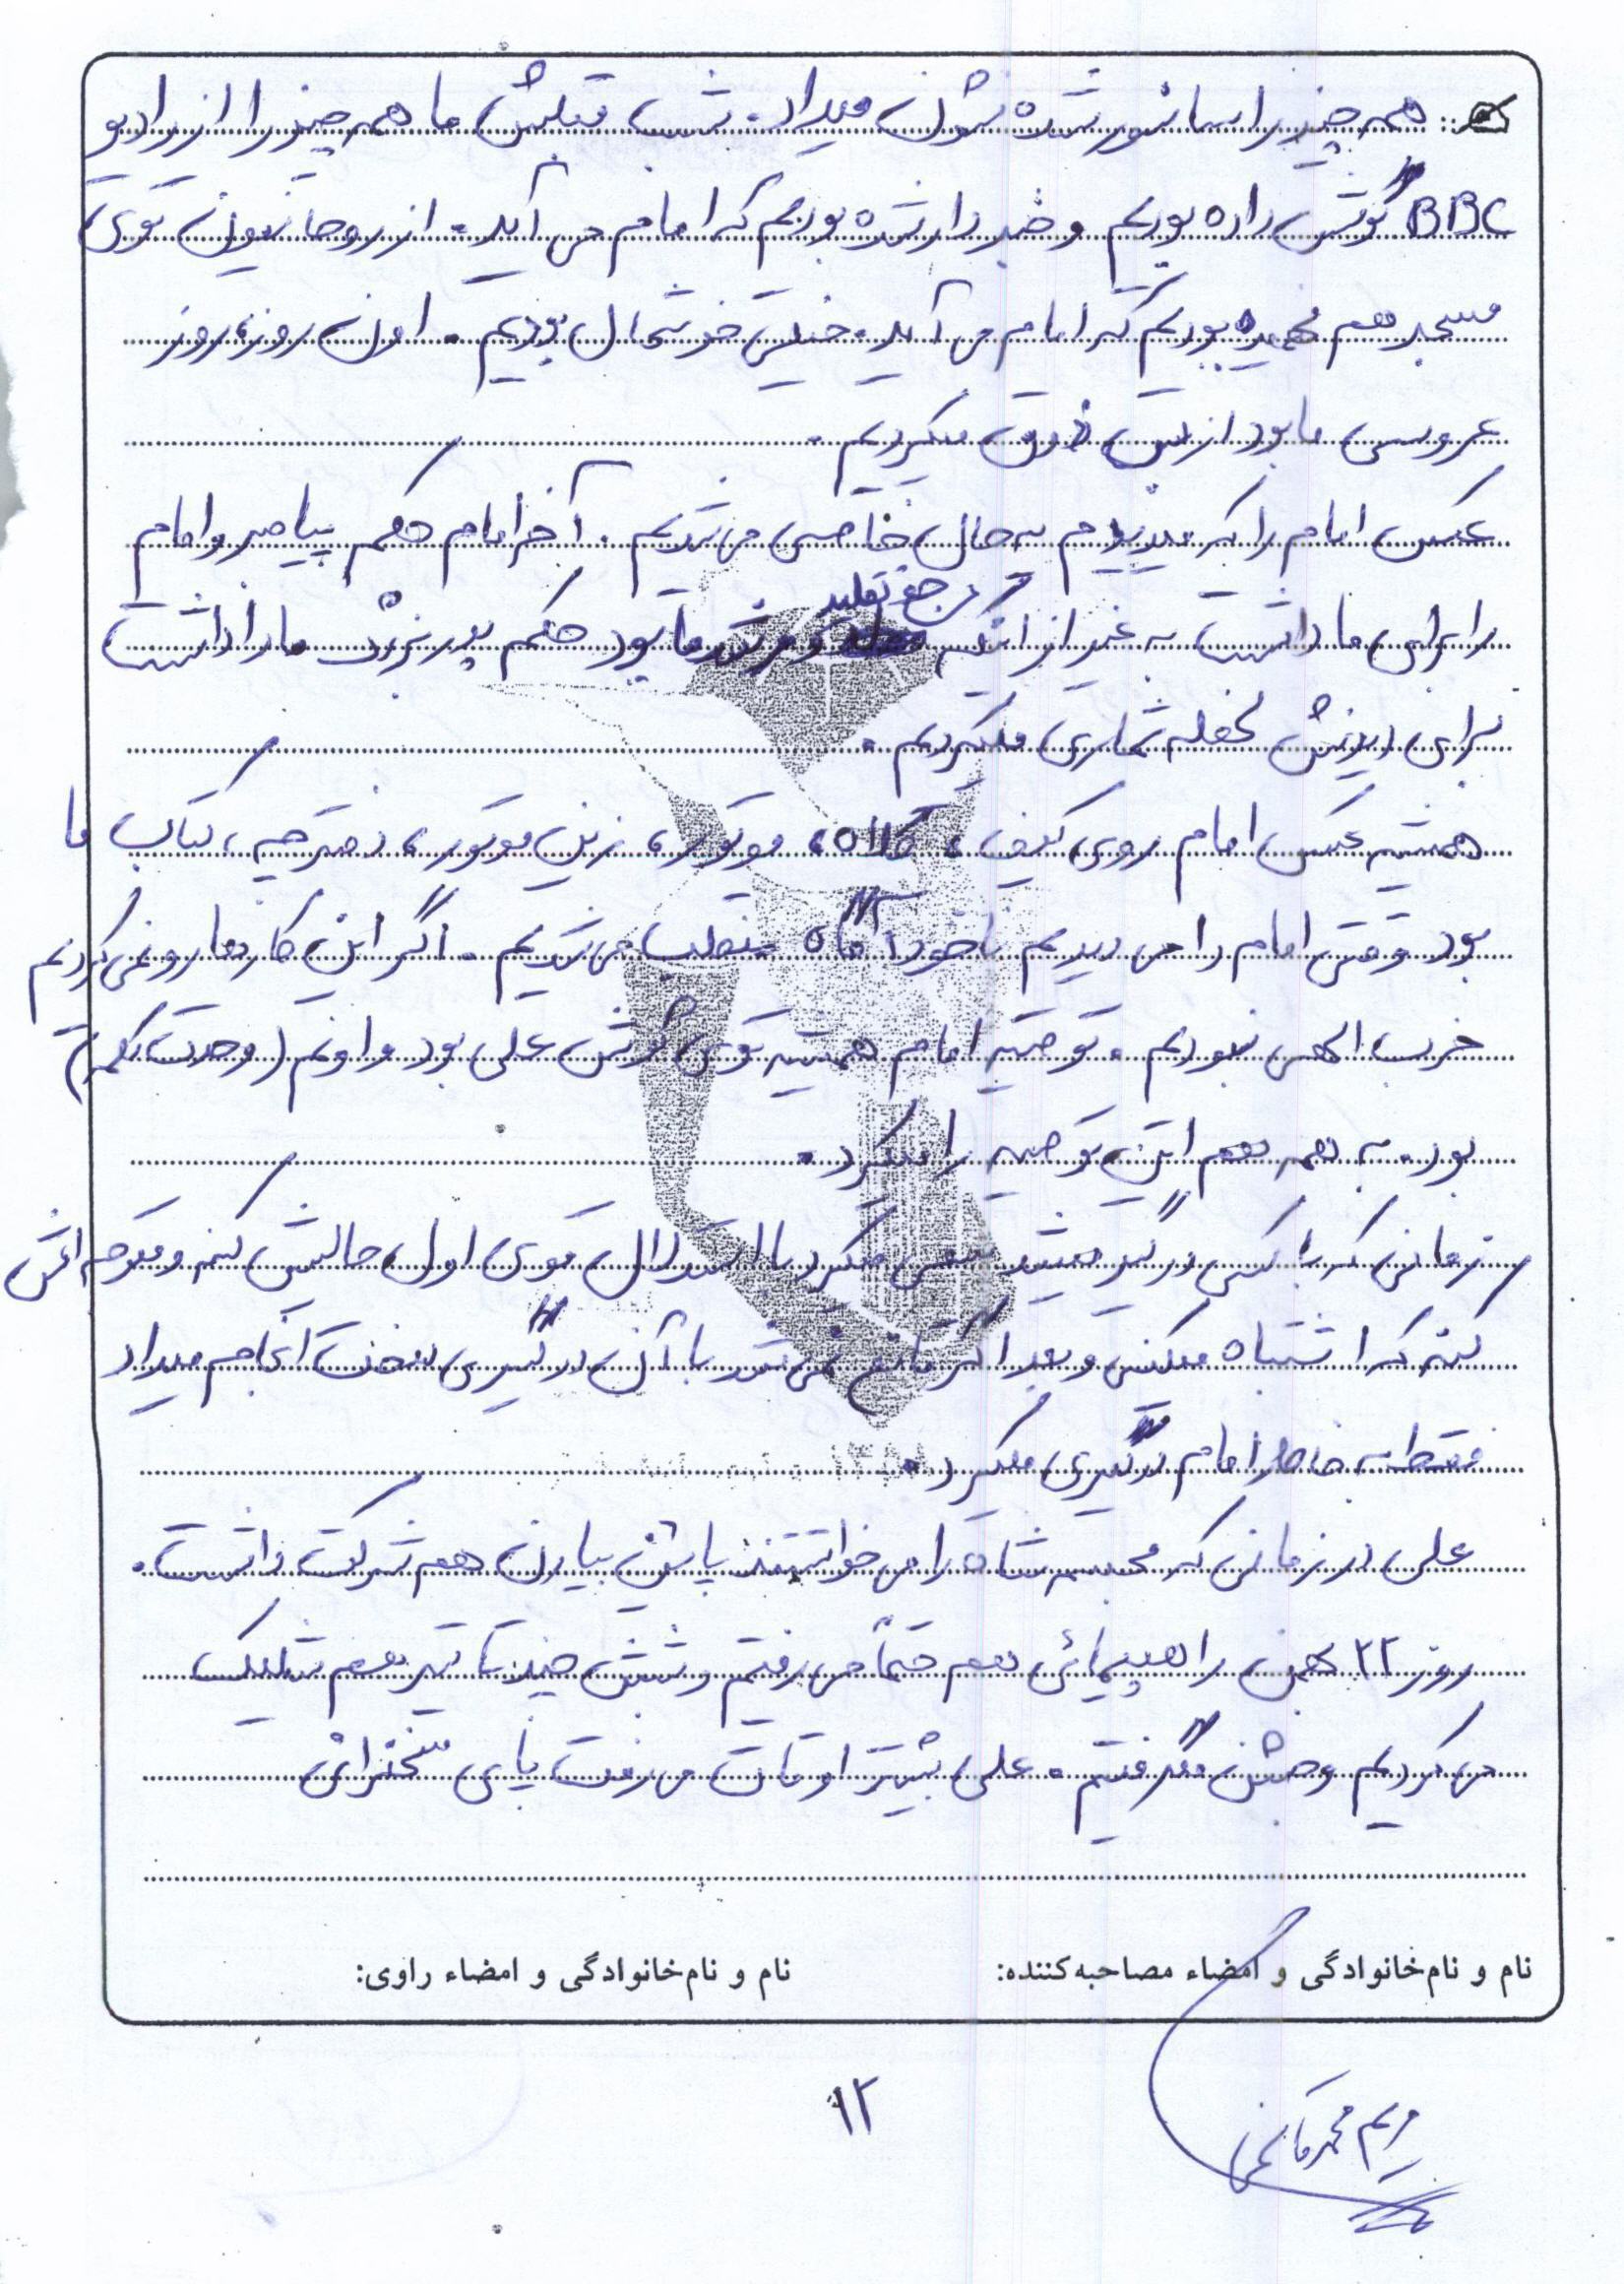 همه چیز را سانسور شده نشون میداد. شب قبلش ما همه چیز را از رادیو
BBC گوش داده بودیم و خبردار شده بودیم که امام می آید. از روحانیون توی
مسجد هم فهمیده بودیم که امام می آید. خیلی خوشحال بودیم. اون روز، روز
عروسی ما بود از بس ذوق میکردیم.
عکس امام را که میدیدیم یه حال خاصی می شدیم. آخر امام حکم پیامبر و امام
را برای ما داشت به غیر از اینکه مرجع تقلید و مرشد ما بود حکم پدربزرگ ما را داشت
برای دیدنش لحظه شماری میکردیم.
همیشه عکس امام روی کیف، کلاه، موتور، زین موتور، دفترچه، کتاب ما
بود وقتی امام را می دیدیم ناخودآگاه منقلب می شدیم. اگر این کارها رو نمی کردیم
حزب الهی نبودیم. توصیه امام همیشه توی گوش علی بود و اونم (وحدت کلمه)
بود. به همه هم این توصیه را میکرد.
زمانی که با کسی درگیر میشد سعی میکرد با استدلال قوی اول حالیش کنه و متوجه اش
کنه که اشتباه میکنی و بعد اگر قانع نمی شد با آن درگیری سخت انجام میداد
فقط به خاطر امام درگیری میکرد.
علی در زمانی که مجسمه شاه را می خواستند پائین بیارن هم شرکت داشت.
روز ۲۲ بهمن راهپیمائی هم حتماً می رفتیم و شبش چند تا تیر هم شلیک
می کردیم و جشن میگرفتیم. علی بیشتر اوقات می رفت پای سخنرانی
نام و نام‌خانوادگی و امضاء مصاحبه‌کننده:
نام و نام‌خانوادگی و امضاء راوی:
مریم محمدقاسمی
۱۲